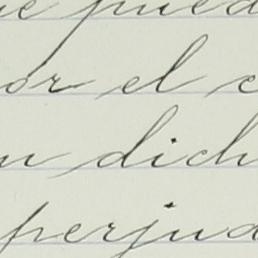 e pued
or el c
n dich
perjud